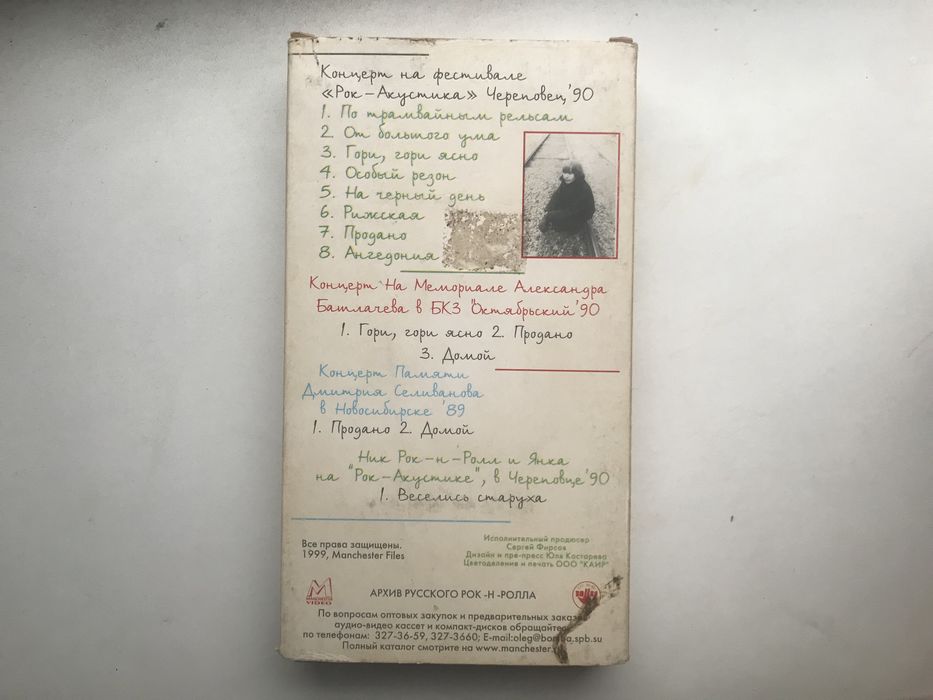 Концерт на фестивале
«Рок-Акустика» Череповец,'90
1. По трамвайным рельсам
2. От большого ума
3. Гори, гори ясно
4. Особый резон
5. На черный день
6. Рижская
7. Продано
8. Ангедония
Концерт На Мемориале Александра
Батлачева в БКЗ "Октябрьский'90
1. Гори, гори ясно 2. Продано
3. Домой
Концерт Памяти
Дмитрия Селиванова
в Новосибирске '89
1. Продано 2. Домой
Ник Рок-н-Ролл и Янка
на "Рок-Акустике", в Череповце'90
1. Веселись старуха
Все права защищены.
1999, Manchester Files
Исполнительный продюсер
Сергей Фирсов
Дизайн и пре-пресс Юля Костарева
Цветоделения и печать ООО "КАИР"
MANCHESTER
VIDEO
АРХИВ РУССКОГО РОК -Н -РОЛЛА
По вопросам оптовых закупок и предварительных
аудио-видео кассет и компакт-дисков
по телефонам: 327-36-59, 327-3660; E-mail:oleg@bomba.spb.su
Полный каталог смотрите на www.manchester.